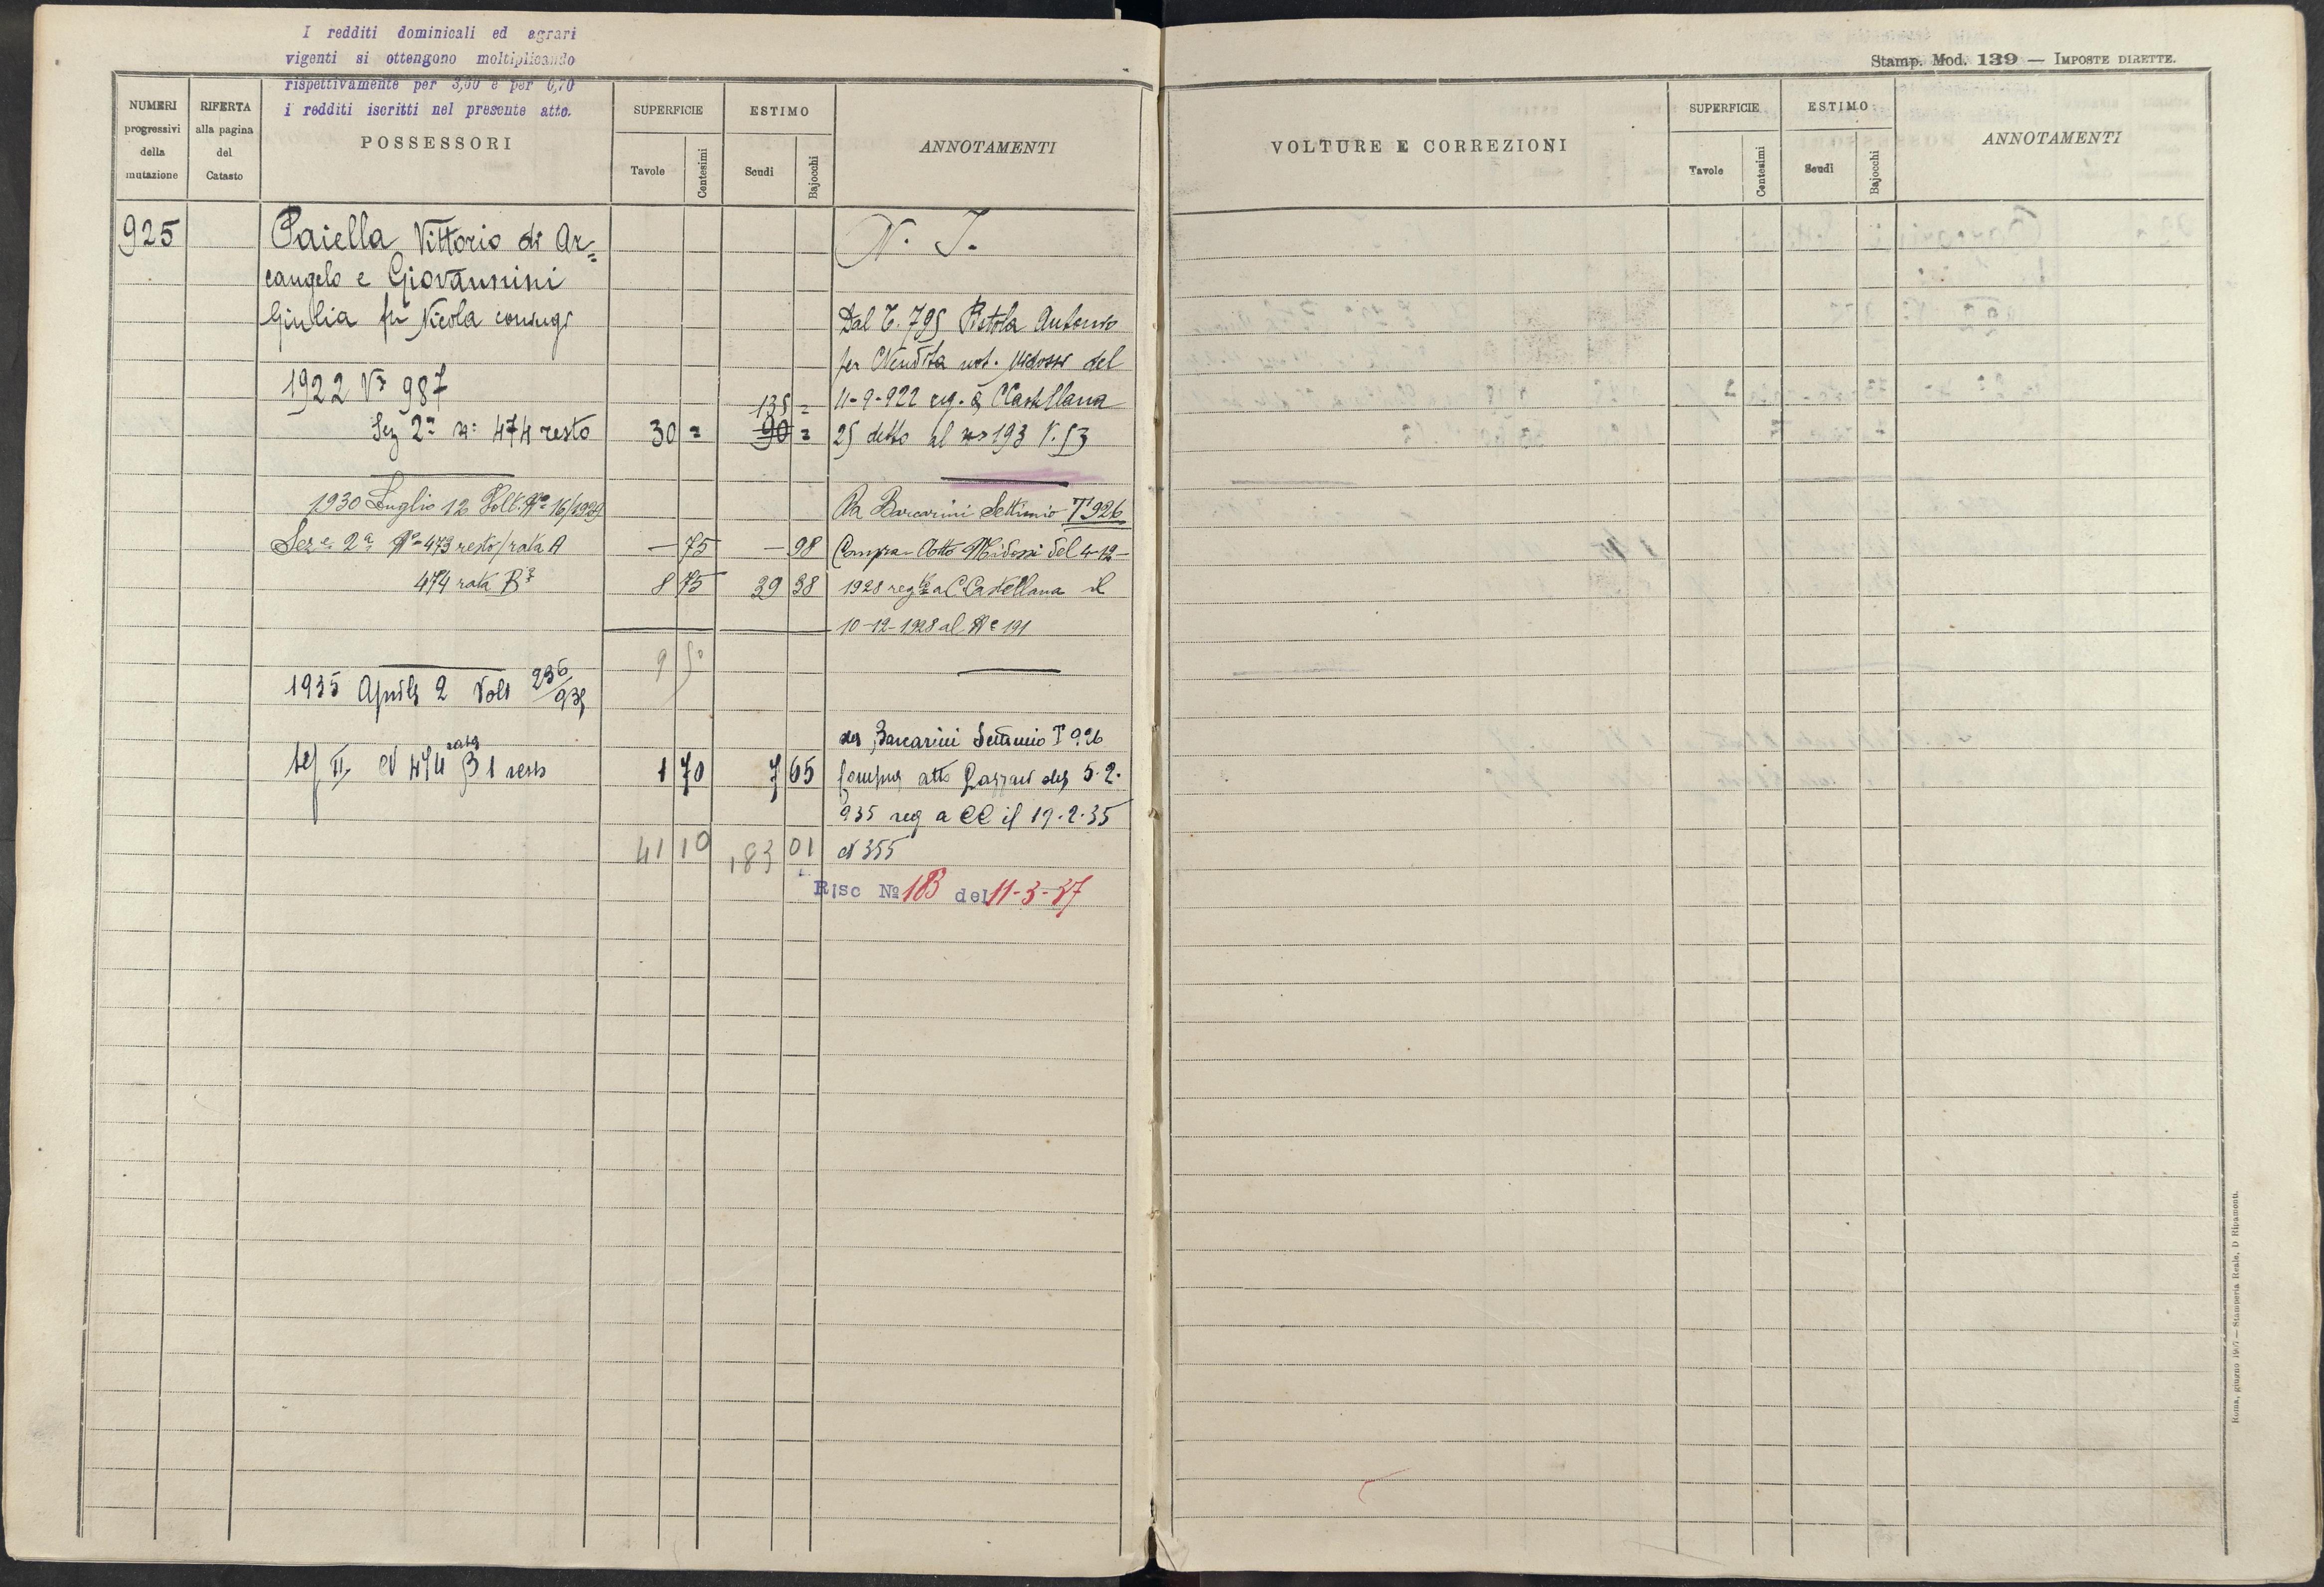 I redditi dominicali ed agrari
vigenti si ottengono moltiplicando
rispettivamente per 3,60 e per 0,70
i redditi iscritti nel presente atto.
NUMERI progressivi della mutazione
RIFERTA alla pagina del Catasto
POSSESSORI
SUPERFICIE
Tavole
Centesimi
ESTIMO
Scudi
Bajocchi
ANNOTAMENTI
925 Paiella Vittorio di Ar=
cangelo e Giovannini
Giulia fu Nicola coniugi
N. I.
Dal T. 795 Bitola Antonio
per Vendita not. Midossi del
1922 Vª 987
135 =
11-9-922 reg. a CCastellana
Sez 2ª nº 474 resto 30 = 90 = 25 detto al nº 193 V. 53
1930 Luglio 12 Volt. Nº 16/1929
Da Barcarini Settimio T 926
Sez e 2ª Nº 473 resto/rata A — 75 — 98 Compra - Atto Midossi del 4-12-
474 rata B² 8 75 39 38 1928 regto a C. Castellana il
10-12-1928 al Nº 191
9 50
1935 Aprile 2 Volt 236/935
da Barcarini Settimio T 926
Sez II N 474 rata B 1 resto 1 70 7 65 Compra atto Gazzani del 5.2.
935 reg a CC il 19.2.35
41 10 183 01 N 355
Risc Nº 183 del 11-3-37
Stamp. Mod. 139 — IMPOSTE DIRETTE.
VOLTURE E CORREZIONI
SUPERFICIE
Tavole
Centesimi
ESTIMO
Scudi
Bajocchi
ANNOTAMENTI
Roma, giugno 1907 — Stamperia Reale, D Ripamonti.